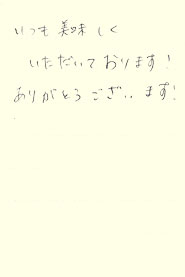 いつも美味しく
いただいております!
ありがとうございます!